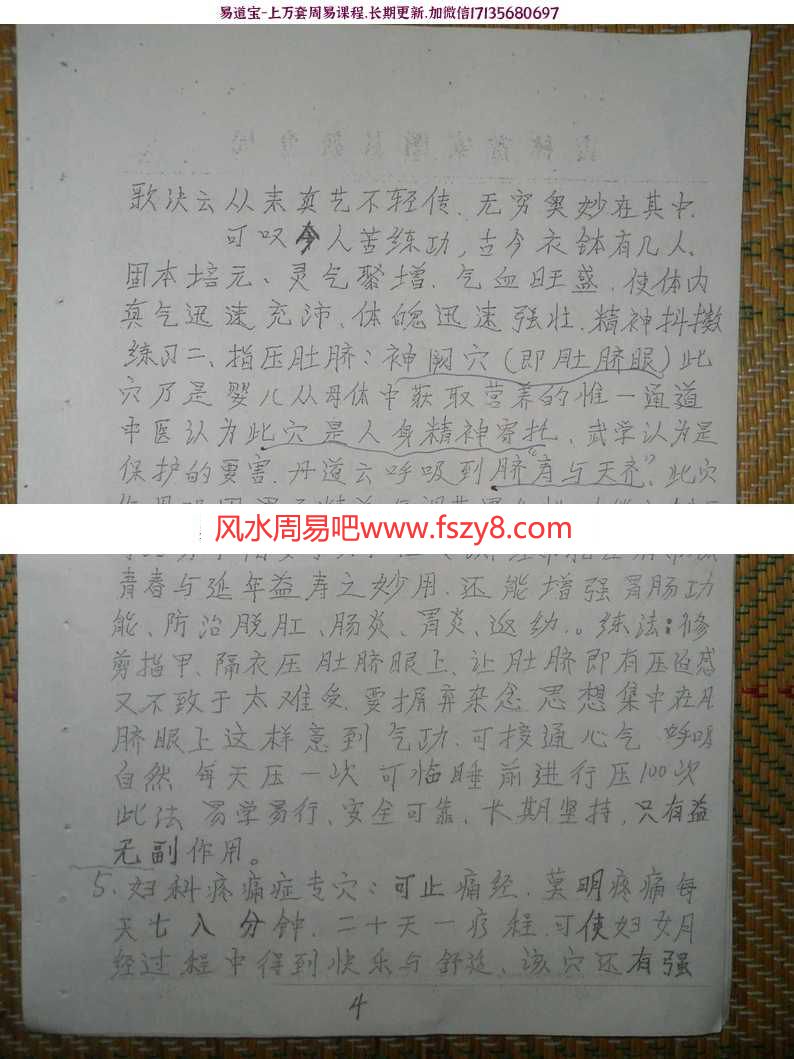 易道宝-上万套周易课程.长期更新.加微信17135680697
歌决云从来真艺不轻传、无穷奥妙在其中.
可叹今人苦练功,古今衣钵有几人.
固本培元、灵气聚增、气血旺盛.使体内
真气迅速充沛、体魄迅速强壮.精神抖擞
练习二、指压肚脐:神阙穴(即肚脐眼)此
穴乃是婴儿从母体中获取营养的惟一通道
中医认为此穴是人身精神寄托、武学认为是
保护的要害.丹道云呼吸到脐"寿与天齐".此穴
风水周易吧www.fszy8.com
青春与延年益寿之妙用.还能增强胃肠功
能、防治脱肛、肠炎、胃炎、返幼。练法:修
剪指甲、隔衣压肚脐眼上、让肚脐即有压迫感
又不致于太难受.要摒弃杂念思想集中在肚
脐眼上这样意到气功.可接通心气呼吸
自然每天压一次可临睡前进行压100次
此法易学易行、安全可靠、长期坚持,只有益
无副作用。
5、妇科疼痛症专穴:可止痛经.莫明疼痛每
天七八分钟.二十天一疗程.可使妇女月
经过程中得到快乐与舒适、该穴还有强
4